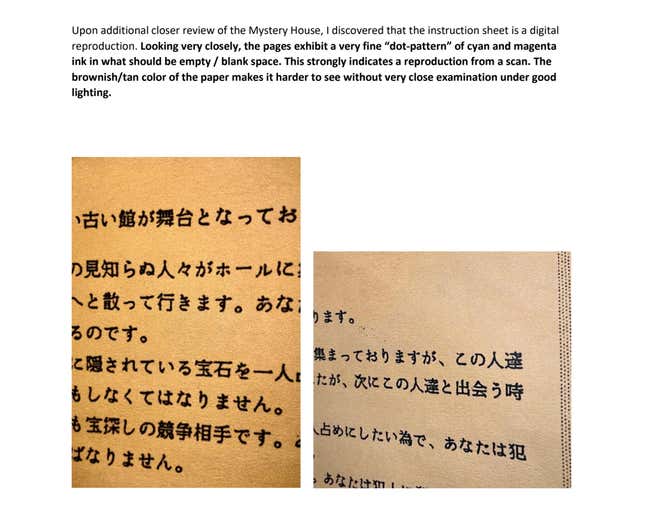 Upon additional closer review of the Mystery House, I discovered that the instruction sheet is a digital
reproduction. Looking very closely, the pages exhibit a very fine “dot-pattern” of cyan and magenta
ink in what should be empty / blank space. This strongly indicates a reproduction from a scan. The
brownish/tan color of the paper makes it harder to see without very close examination under good
lighting.
い古い館が舞台となってお
の見知らぬ人々がホールに
へと散って行きます。あな
るのです。
に隠されている宝石を一人
もしなくてはなりません。
も宝探しの競争相手です。
ばなりません。
ります。
集まっておりますが、この人達
たが、次にこの人達と出会う時
人占めにしたい為で、あなたは犯
あなたは犯